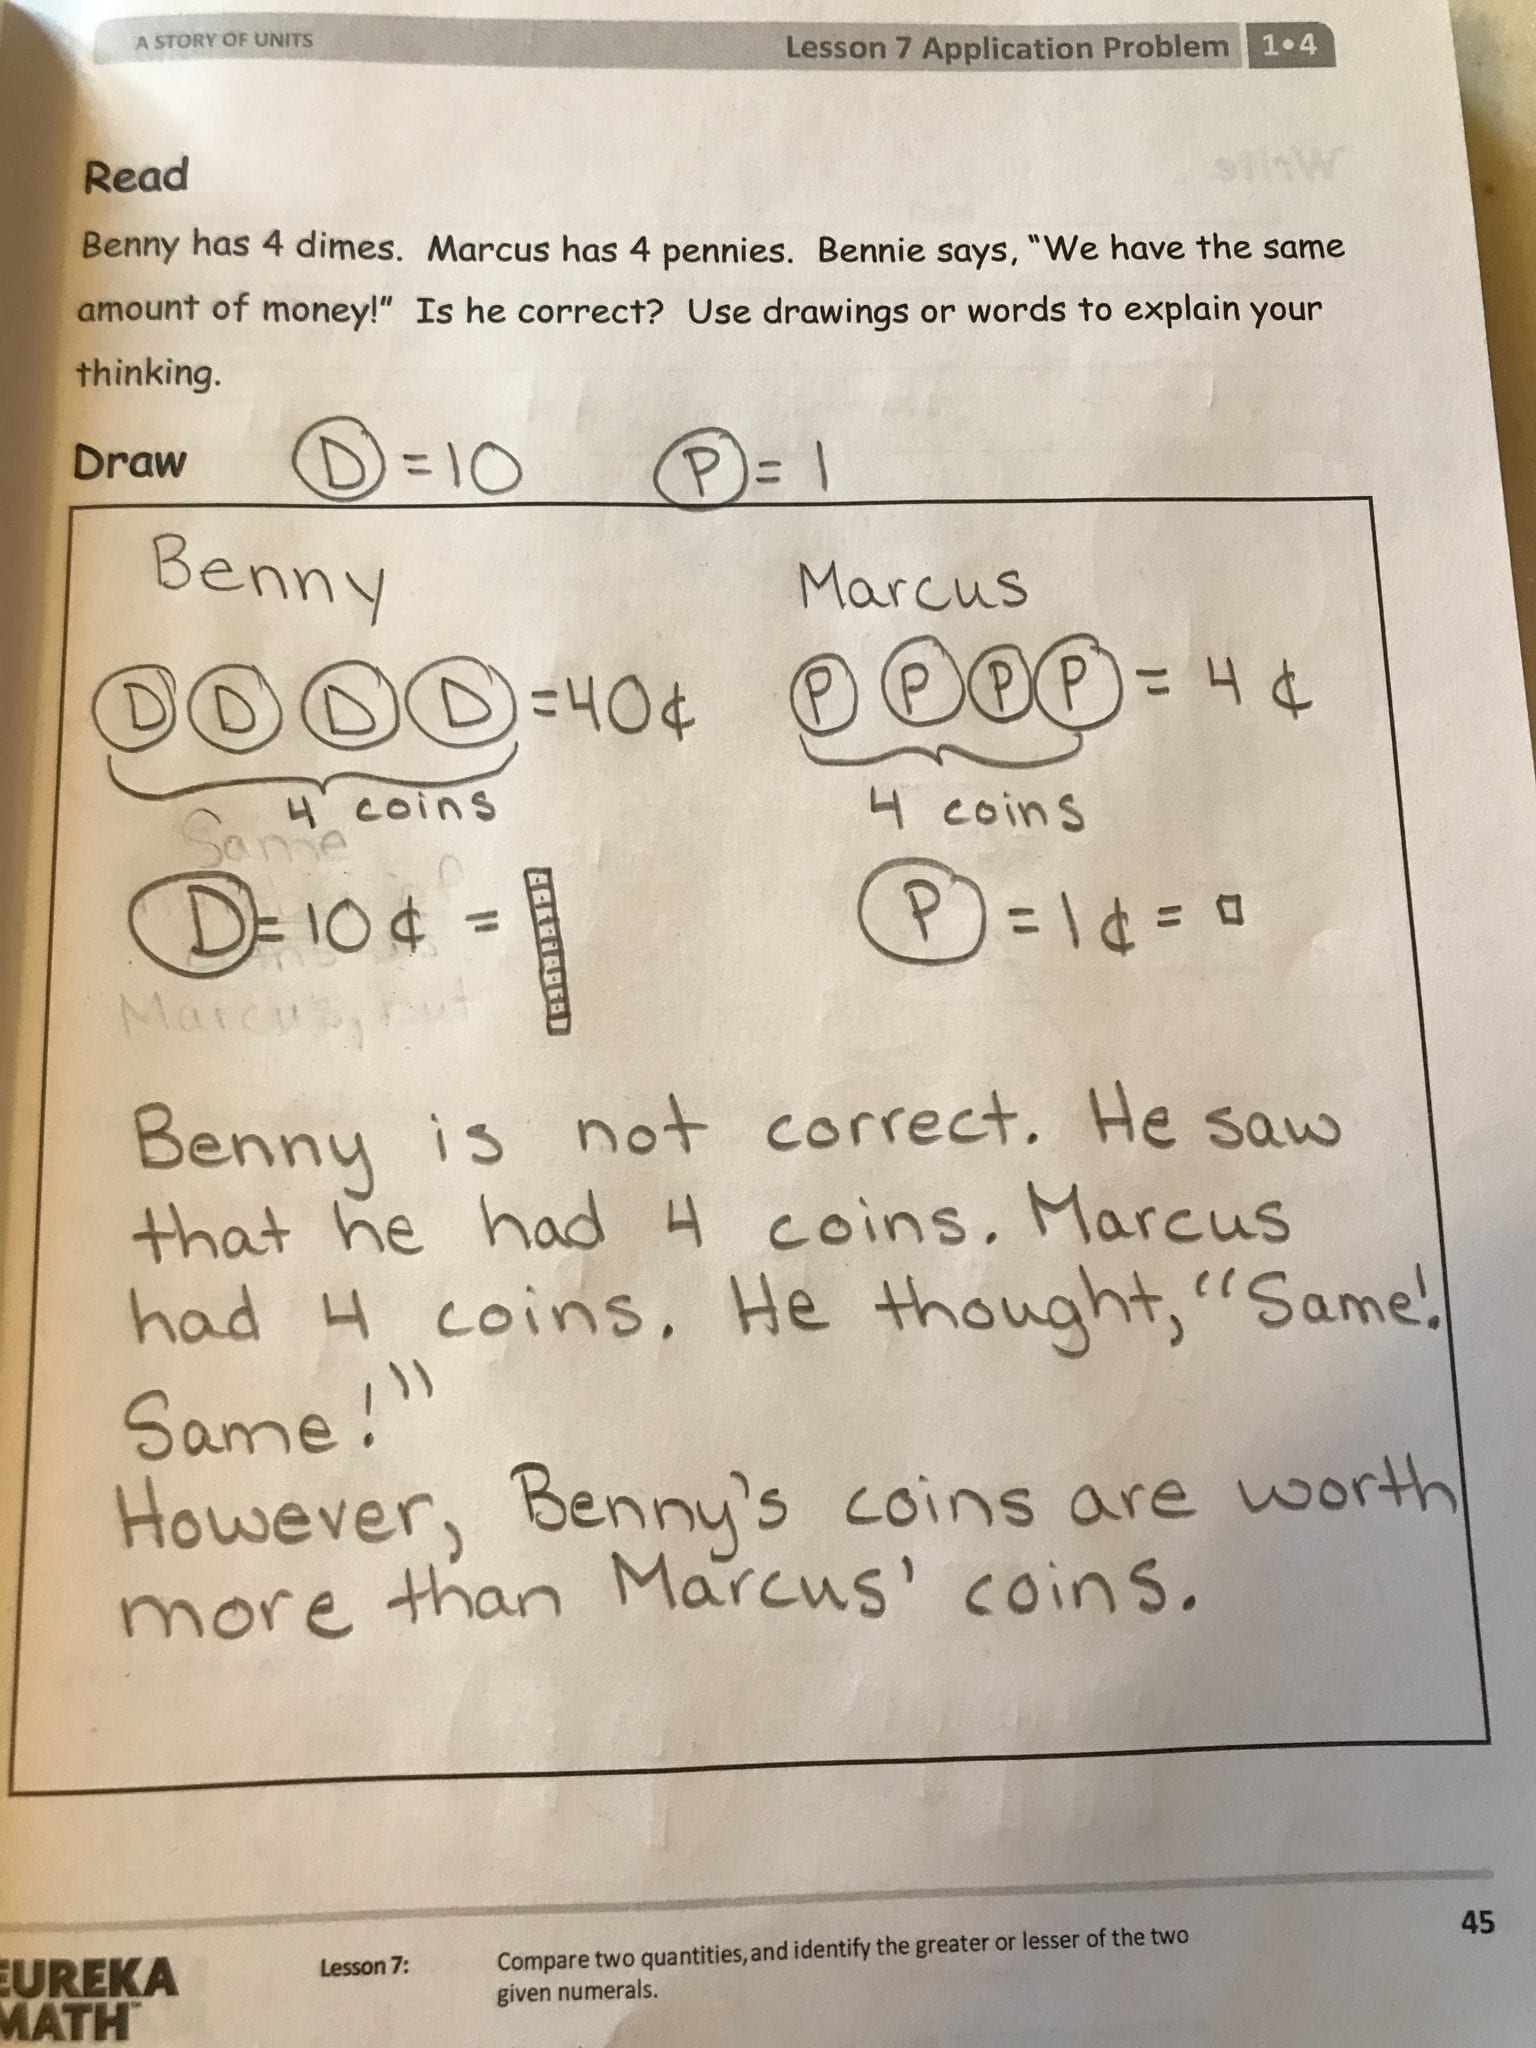 A STORY OF UNITS
Lesson 7 Application Problem 1•4
Write
Read
Benny has 4 dimes. Marcus has 4 pennies. Bennie says, "We have the same
amount of money!" Is he correct? Use drawings or words to explain your
thinking.
Draw D = 10 P = 1
Benny
Marcus
D D D D = 40¢
P P P P = 4¢
4 coins
4 coins
Same
D = 10¢ =
P = 1¢ =
Marcus, but
Benny is not correct. He saw
that he had 4 coins. Marcus
had 4 coins. He thought, "Same!
Same!"
However, Benny's coins are worth
more than Marcus' coins.
45
EUREKA
MATH™
Lesson 7: Compare two quantities, and identify the greater or lesser of the two
given numerals.